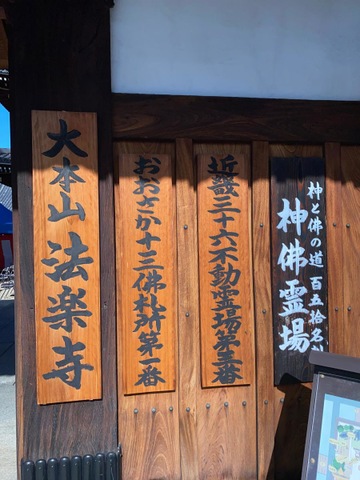 神と佛の道 百五拾名
神佛霊場
近畿三十六不動霊場第三番
おおさか十三佛札所第一番
大本山 法楽寺